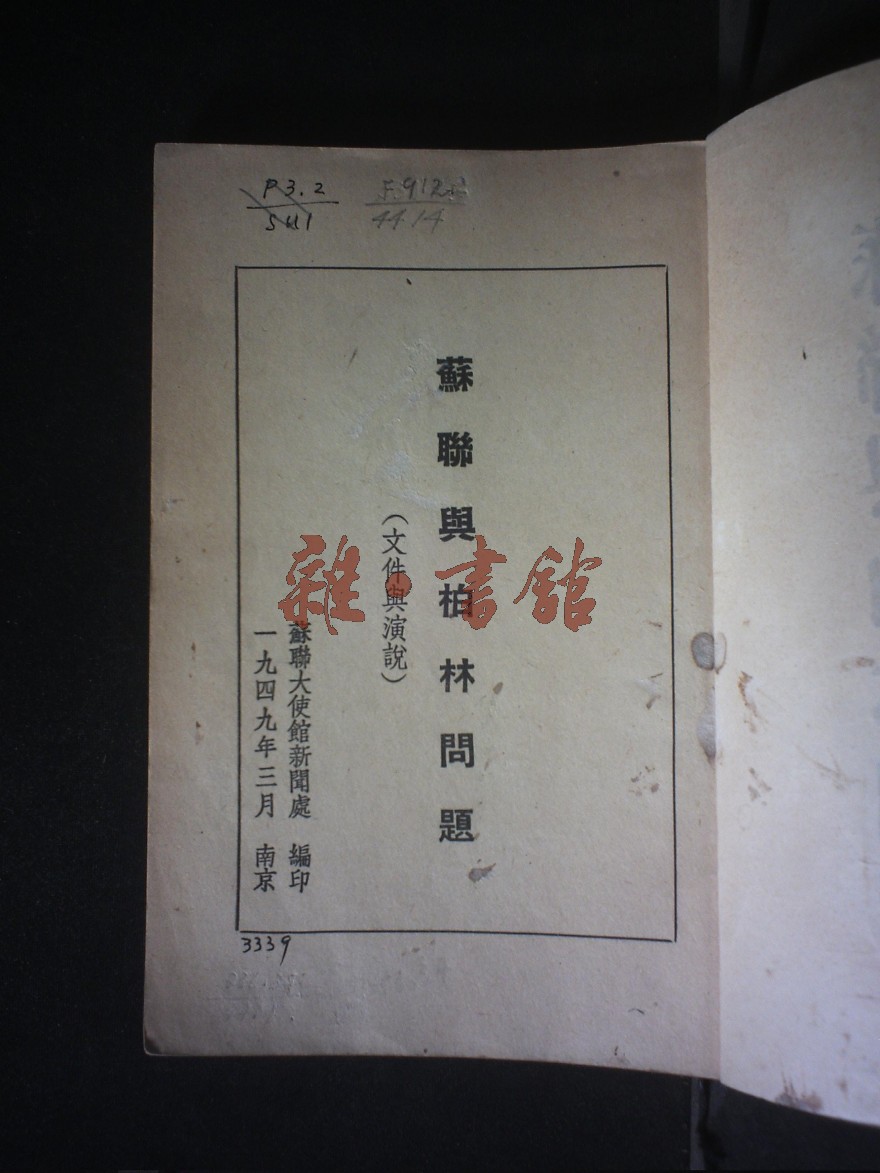 P3.2
SU1
4414
蘇聯與柏林問題
(文件與演說)
蘇聯大使館新聞處 編印
一九四九年三月 南京
雜·書館
3339